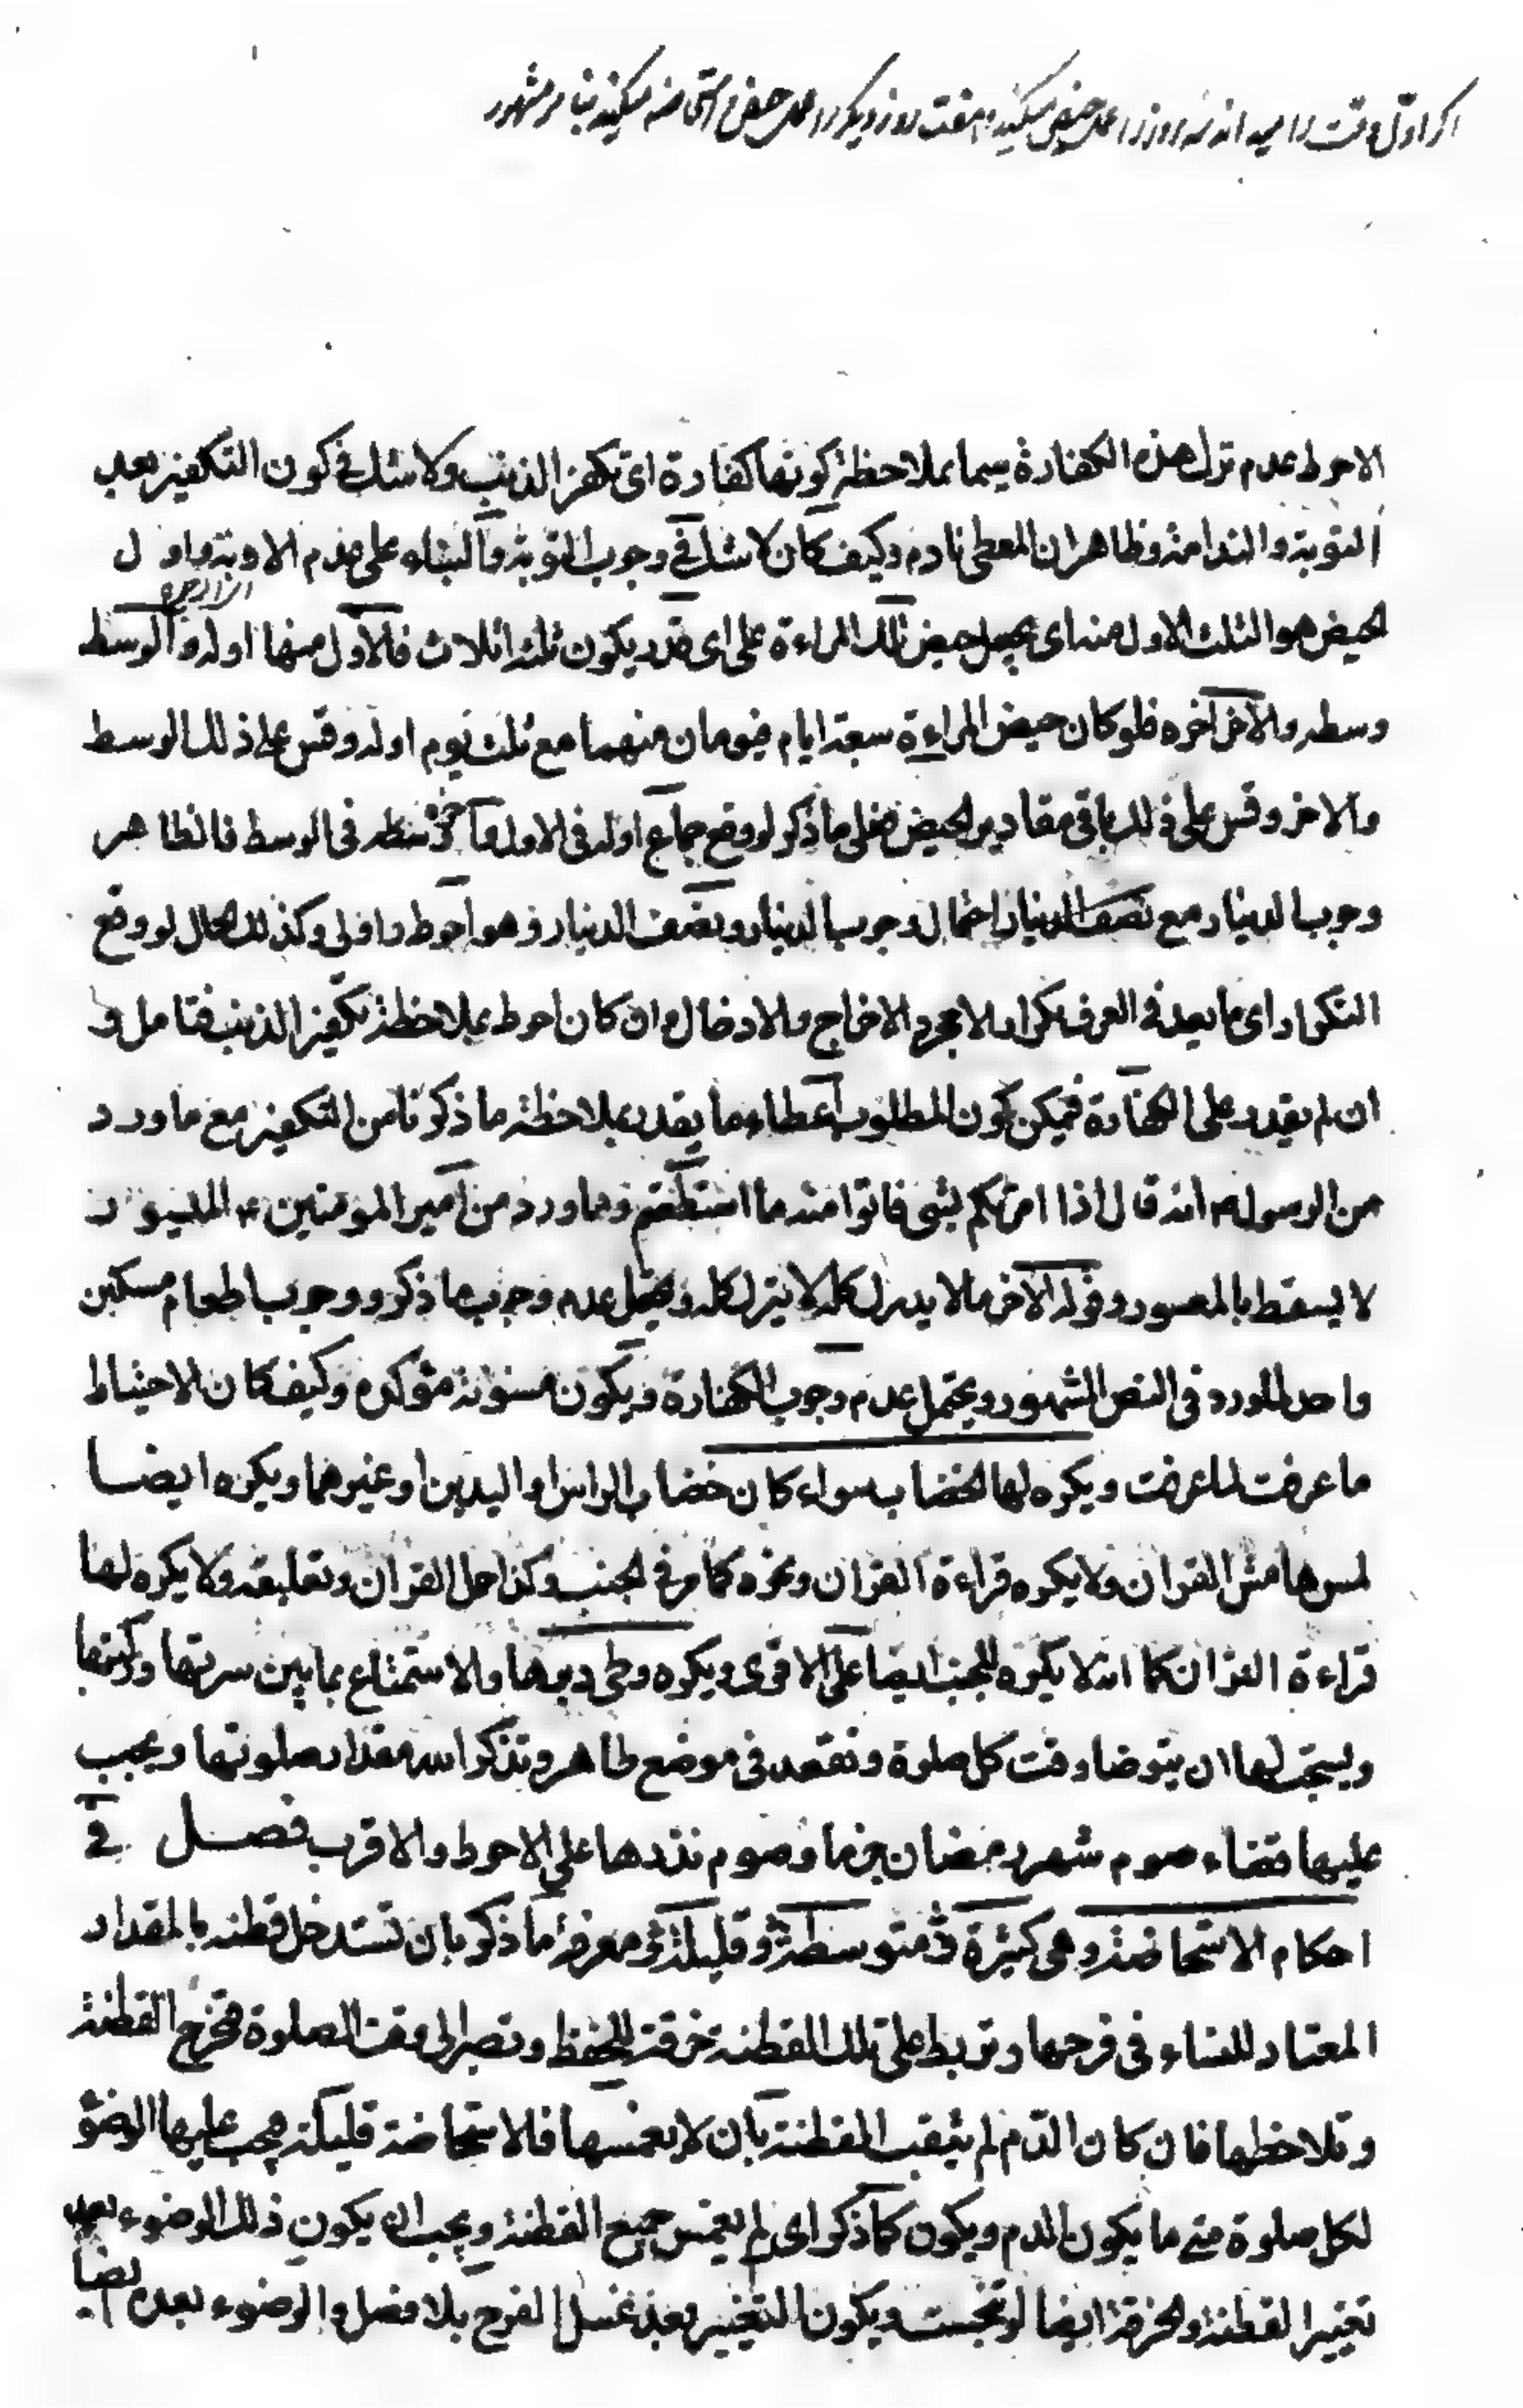 اگر اول وقت را میداند سه روز را عمل حیض میکند و هفت روز دیگر را عمل حیض و استحاضه میکند بنا بر مشهور
الاحوط عدم ترك هذه الكفارة سيما بملاحظة كونها كفارة اى تكفر الذنب ولا شك فى كون التكفير بعد
التوبة والندامة وظاهر ان المعطى نادم وكيف كان لا شك فى وجوب التوبة والبناء على عدم الاوبة واول
الحيض هو الثلث الاول منه اى يجعل حيض تلك المراءة على اى قدر يكون ثلثة اثلاث فالاول منها اوله والوسط
وسطه والاخر اخره فلو كان حيض المراءة سبعة ايام فيومان منهما مع ثلث يوم اوله وقس على ذلك الوسط
والاخر وقس على ذلك باقى مقادير الحيض فعلى ما ذكر لو وقع جماع اوله فى الاول و فى الوسط فالظاهر
وجوب الدينار مع نصف الدينار احتمال وجوب الدينار ونصف الدينار وهو احوط واولى وكذلك الحال لو وقع
التكرار اى ما يعد فى العرف تكرارا لا بمجرد الاخراج والادخال وان كان احوط بملاحظة تكفير الذنب فتامل و
ان لم يقدر على الكفارة فيمكن كون المطلوب اعطاء ما يقدر بملاحظة ما ذكرنا من التكفير مع ما ورد
من الرسول ص انه قال اذا امرتكم بشى فاتوا منه ما استطعتم وما ورد من امير المؤمنين ع الميسور
لا يسقط بالمعسور وقوله الاخر ما لا يدرك كله لا يترك كله ويحتمل عدم وجوب ما ذكر ووجوب اطعام مسكين
واحد لما ورد فى النص المشهور ويحتمل عدم وجوب الكفارة ويكون مسنونة مؤكدة وكيف كان الاحتياط
ما عرفت لما عرفت ويكره لها الخضاب سواء كان خضاب الراس او اليدين او غيرهما ويكره ايضا
لمس هامش القران ولا يكره قراءة القران ونحوه كما مر فى الجنب وكذا حمل القران وتعليقه ولا يكره لها
قراءة القران كما انه لا يكره للجنب ايضا على الاقوى ويكره وطى دبرها والاستمتاع بما بين سرتها وركبتها
ويستحب لها ان يتوضا وقت كل صلوة وتقعد فى موضع طاهر وتذكر الله مقدار صلوتها ويجب
عليها قضاء صوم شهر رمضان جزما وصوم نذرها على الاحوط والاقرب فصل فى
احكام الاستحاضة وهى كثيرة ومتوسطة وقليلة ومعرفة ما ذكر بان تستدخل قطنة بالمقدار
المعتاد للنساء فى فرجها وتربط على تلك القطنة خرقة للحفظ وتصبر الى وقت الصلوة فتخرج القطنة
وتلاحظها فان كان الدم لم يثقب القطنة بان لا يغمسها فالاستحاضة قليلة يجب عليها الوضؤ
لكل صلوة متى ما يكون الدم ويكون كما ذكر اى لم يغمس جميع القطنة ويجب ان يكون ذلك الوضوء بعد
تغيير القطنة والخرقة ايضا لو تنجست ويكون التغيير بعد غسل الفرج بلا فصل والوضوء بعده ايضا